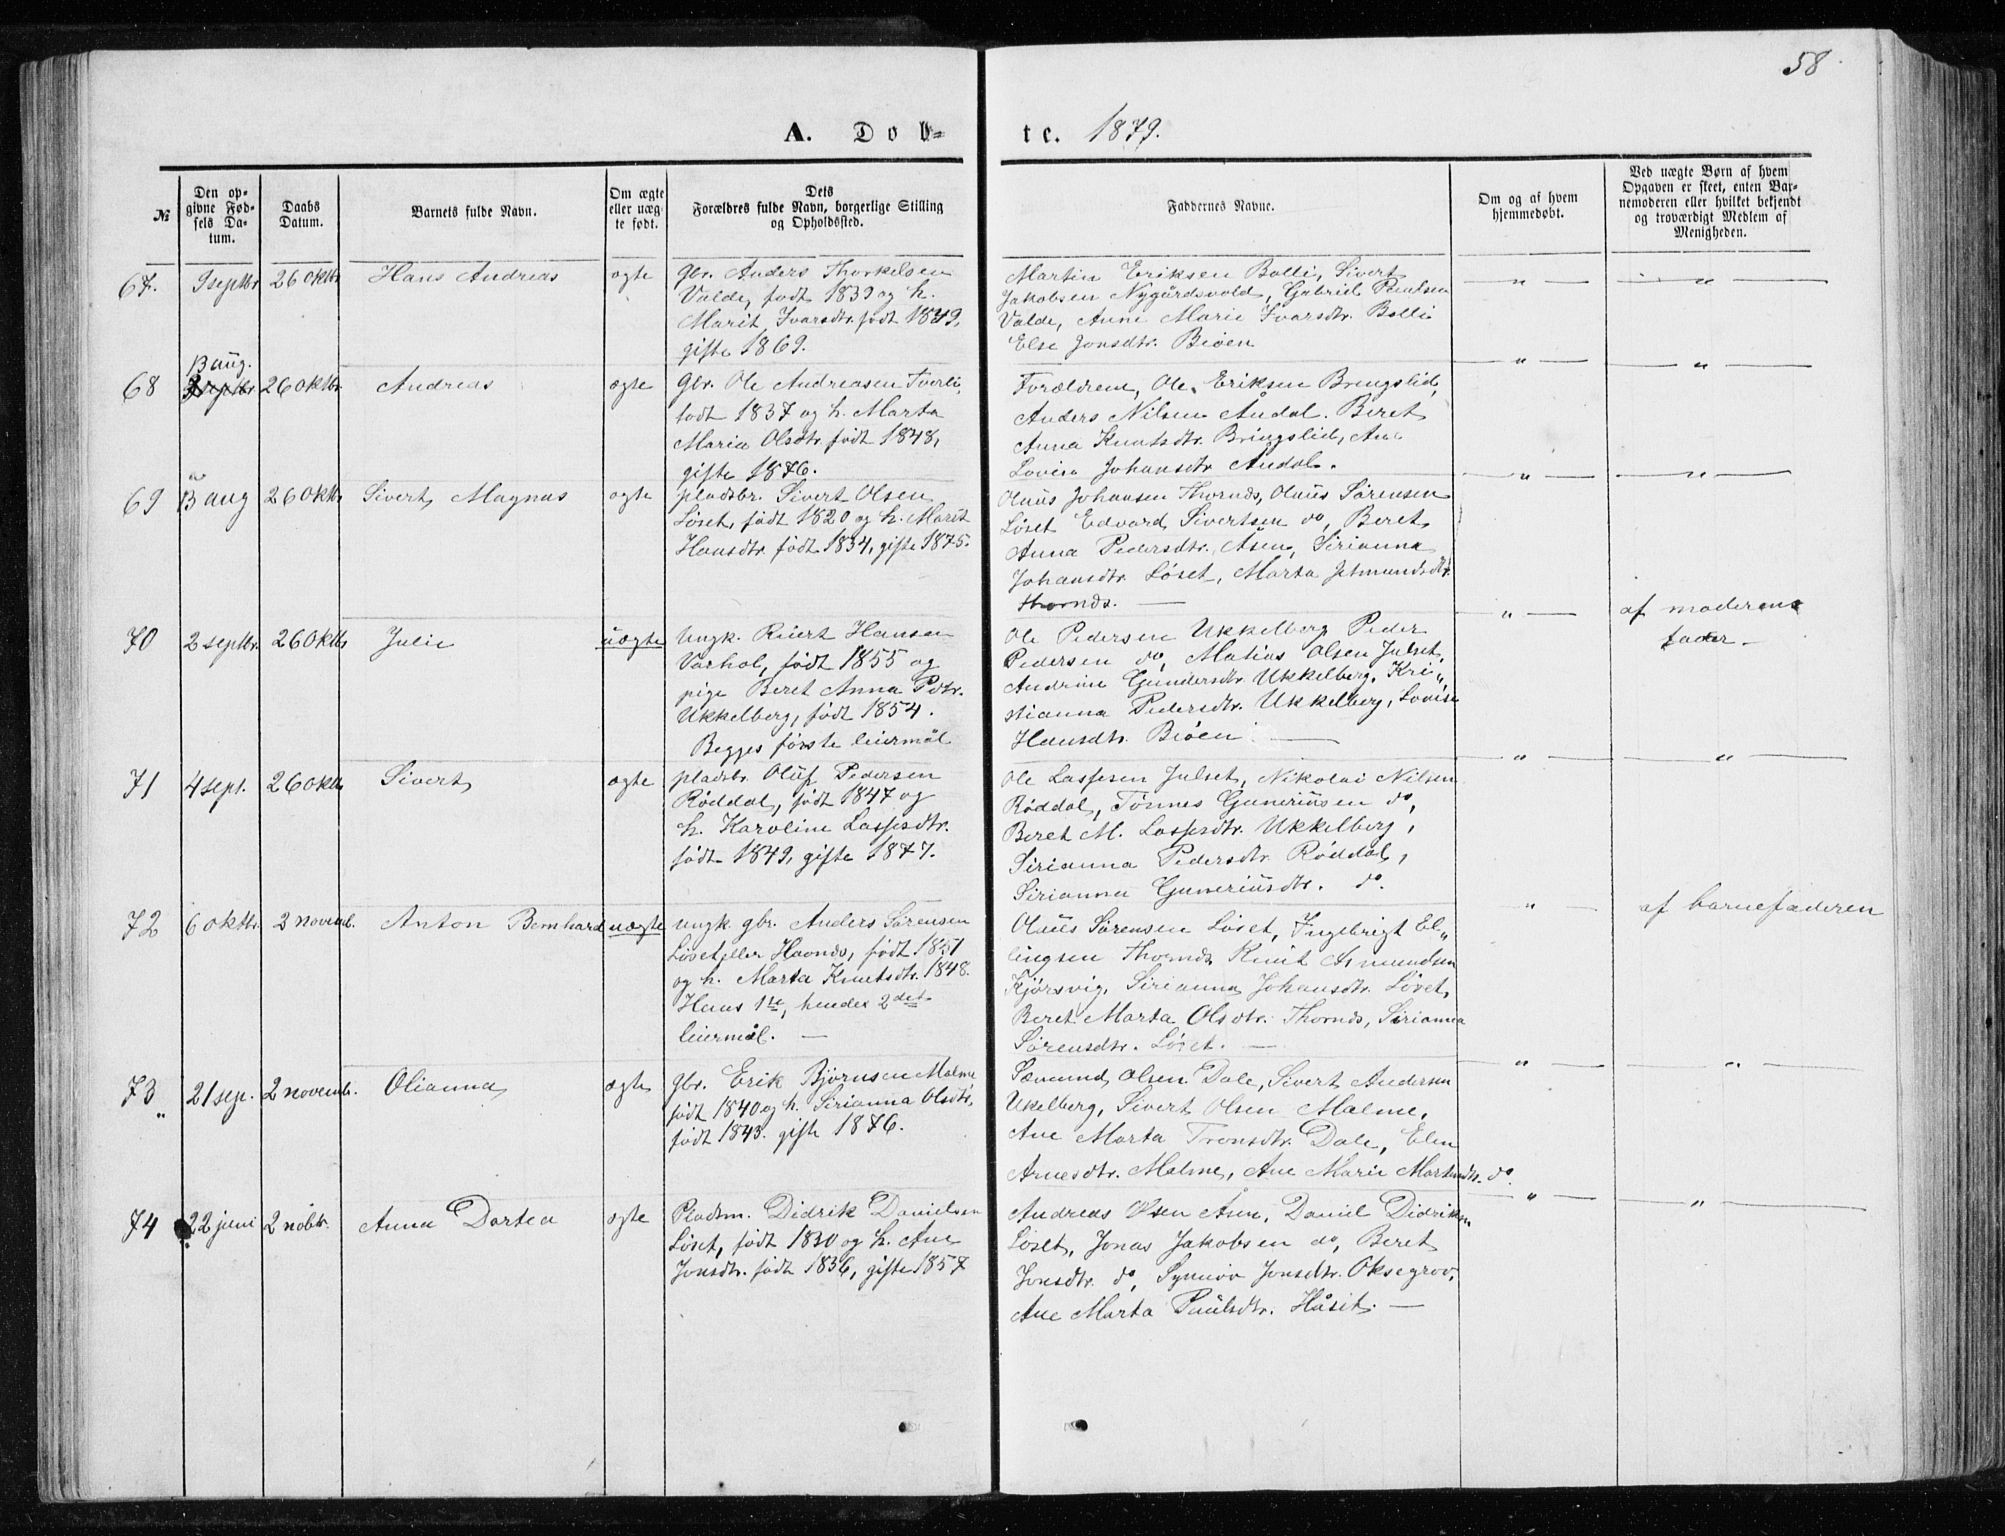 58.
A. Døb-
te. 1879.
№
Den op-
givne Fød-
sels Da-
tum.
Daabs
Datum.
Barnets fulde Navn.
Om ægte
eller uæg-
te født.
Dets
Forældres fulde Navn, borgerlige Stilling
og Opholdssted.
Faddernes Navne.
Om og af hvem
hjemmedøbt.
Ved uægte Børn af hvem
Opgaven er skeet, enten Bar-
nemoderen eller hvilket bekjendt
og troværdigt Medlem af
Menigheden.
67. 9 septbr. 26 oktbr. Hans Andreas ægte
gbr. Anders Thorkelsen
Valde, født 1839 og h.
Marit Ivarsdtr. født 1849,
gifte 1869.
Martin Eriksen Bolli, Sivert
Jakobsen Nygårdsvold, Gabriel Paulsen
Valde, Anne Marie Ivarsdtr. Bolli
Else Jonsdtr. Biøen
68 13 aug. 26 oktbr. Andreas ægte
gbr. Ole Andreasen Tverli,
født 1837 og h. Marta
Maria Olsdtr. født 1848,
gifte 1876.
Forældrene, Ole Eriksen Bringslid,
Anders Nilsen Åndal. Beret
Anna Knutsdtr. Bringslid, Ane
Lovise Johansdtr. Åndal.
69 13 aug 26 oktbr. Sivert Magnus ægte
pladsbr. Sivert Olsen
Løset, født 1820 og h. Marit
Hansdtr. født 1834, gifte 1875.
Olaus Johansen Thornds, Olaus Sørensen
Løset Edvard Sivertsen do, Beret
Anna Pedersdtr. Åsen, Sirianna
Johansdtr. Løset, Marta Jetmundsdtr.
Thornds.
70 2 septbr. 26 oktbr. Julie uægte
ungk. Reiert Hansen
Varhol, født 1855 og
pige Beret Anna Pdtr.
Ukkelberg, født 1854.
Begges første leiermål
Ole Pedersen Ukkelberg Peder
Pedersen do, Matias Olsen Julset,
Andrine Gundersdtr. Ukkelberg, Kri„
stianna Pedersdtr. Ukkelberg, Lovise
Hansdtr. Biøen
af moderens
fader
71 4 sept. 26 oktbr. Sivert ægte
pladsbr. Oluf Pedersen
Røddal, født 1847 og
h. Karoline Lassesdtr.
født 1849, gifte 1877.
Ole Lassesen Julset, Nikolai Nilsen
Røddal, Tønnes Guneriusen do,
Beret M. Lassesdtr. Ukkelberg,
Sirianna Pedersdtr. Røddal,
Sirianna Guneriusdtr. do.
72 6 oktbr. 2 novemb. Anton Bernhard uægte
ungk. gbr. Anders Sørensen
Løset eller Havnds, født 1851
og h. Marta Knutsdtr. 1848.
Hans 1te, hendes 2det
leiermål.
Olaus Sørensen Løset, Ingebrigt El„
lingsen Thornds Knut Amundsen
Kjørsvig, Sirianna Johansdtr. Løset,
Beret Marta Olsdtr. Thornds, Sirianna
Sørensdtr. Løset.
af barnefaderen
73 21 sep. 2 novemb. Olianna ægte
gbr. Erik Bjørnsen Malme
født 1840 og h. Sirianna Olsdtr,
født 1843. gifte 1876.
Sæmund Olsen Dale, Sivert Andersen
Ukelberg, Sivert Olsen Malme,
Ane Marta Tronsdtr. Dale, Elen
Arnesdtr. Malme, Ane Marie Martinsdtr. do.
74 22 juni 2 nobtr. Anna Dortea ægte
Pladsm. Didrik Danielsen
Løset, født 1830 og h. Ane
Jonsdtr. født 1836, gifte 1857
Andreas Olsen Åsen, Daniel Didriksen
Løset, Jonas Jakobsen do, Beret
Jonsdtr. do, Synnøv Jonsdtr. Oksegrov,
Ane Marta Paulsdtr. Håset.